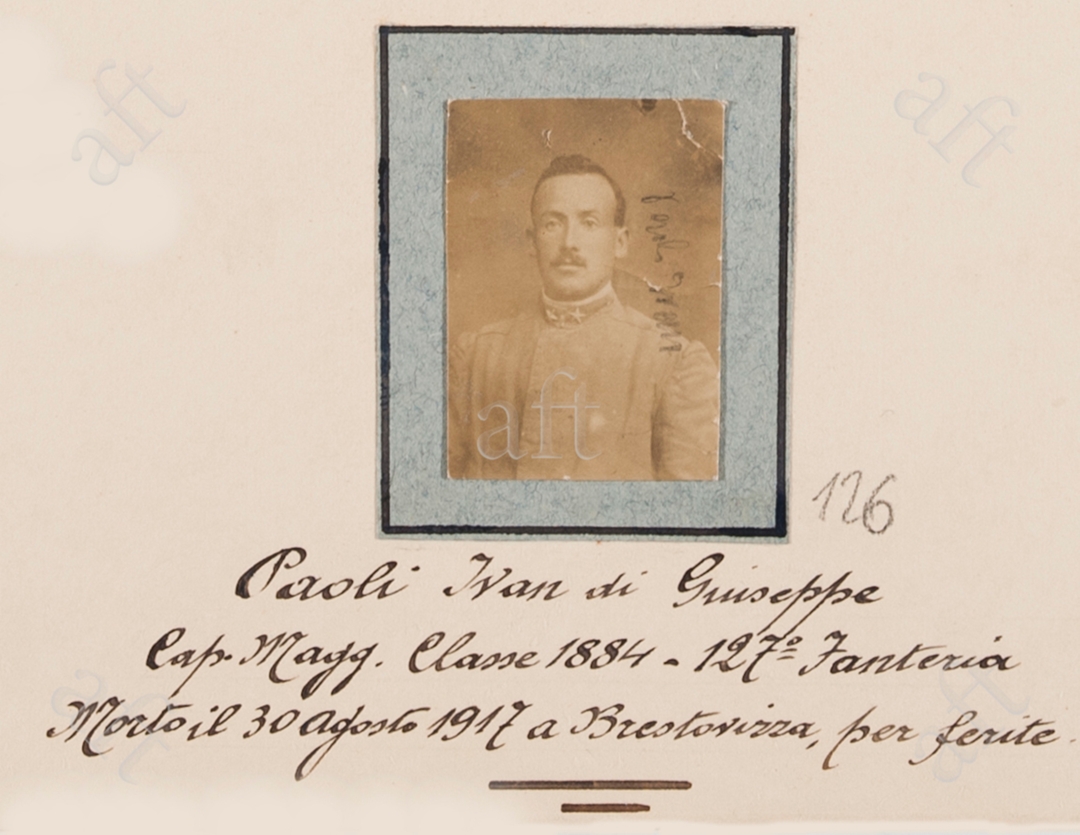 aft
aft
Paoli Ivan
aft
126
Paoli Ivan di Giuseppe
Cap. Magg. Classe 1884 - 127º Fanteria
Morto il 30 Agosto 1917 a Brestovizza, per ferite.
aft
aft